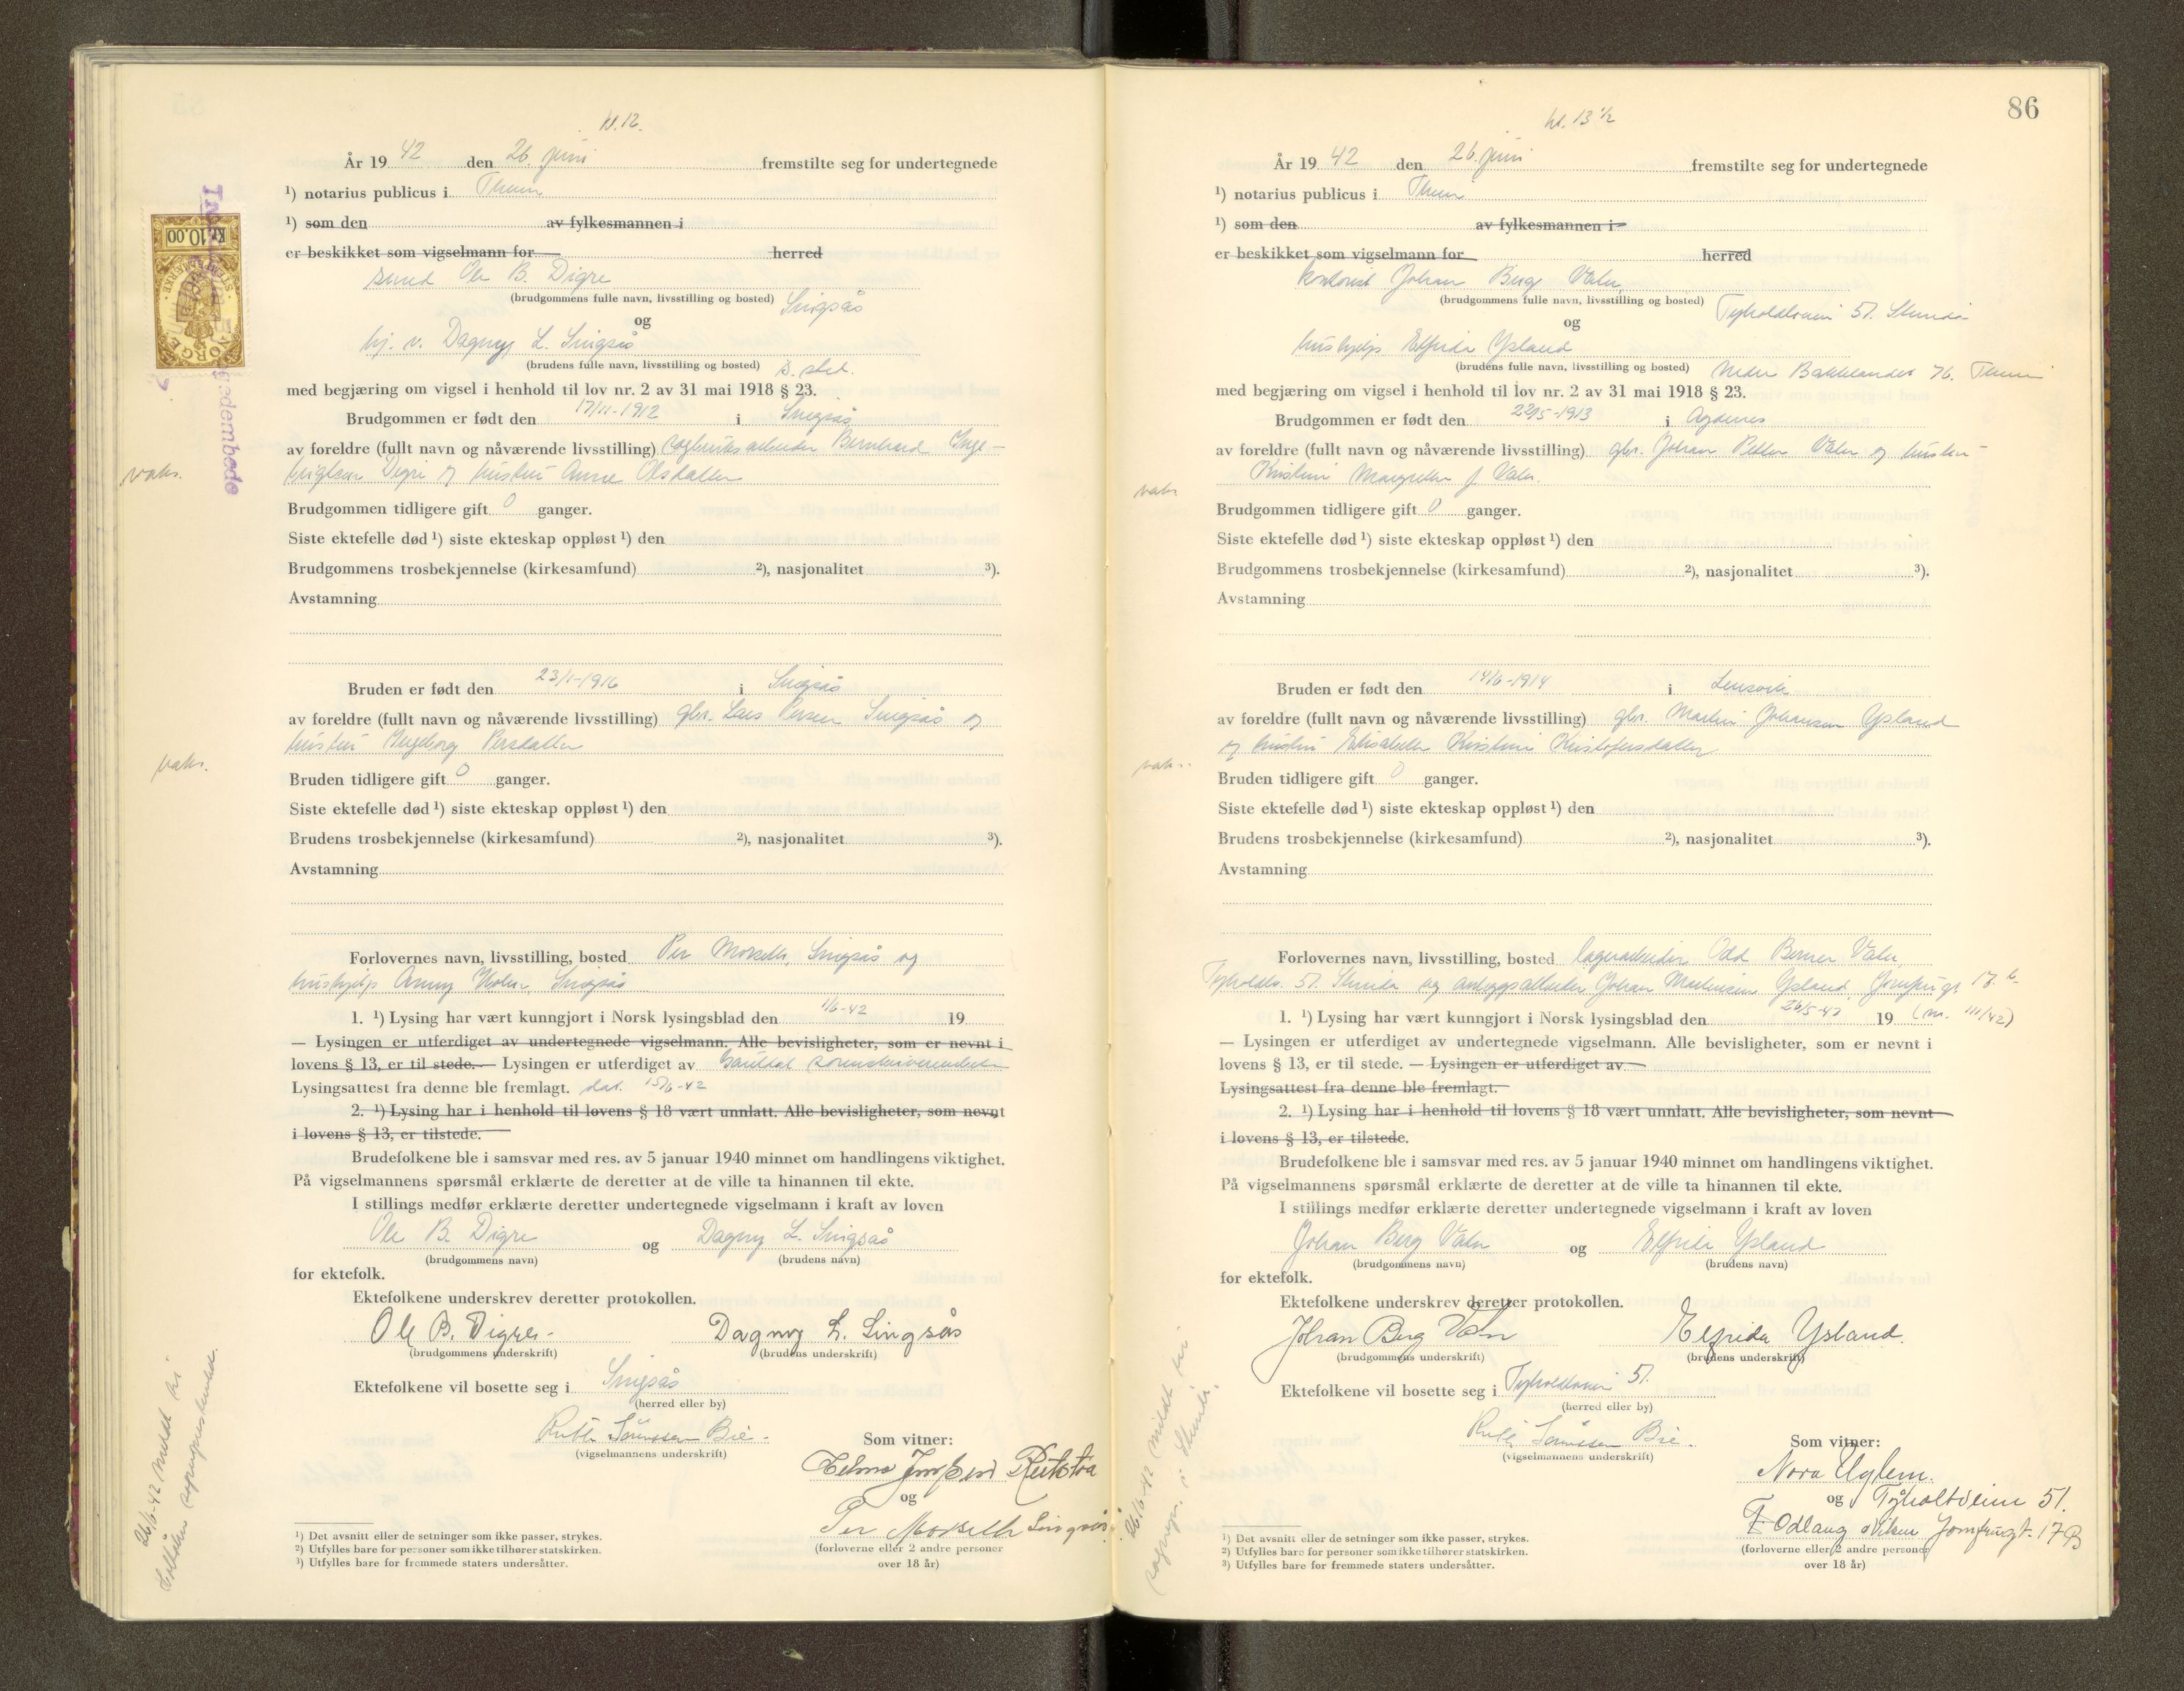 kl. 12.
År 19 42 den 26. juni fremstilte seg for undertegnede
¹) notarius publicus i Them
¹) som den av fylkesmannen i
er beskikket som vigselmann for herred
smed Ole B. Digre
(brudgommens fulle navn, livsstilling og bosted) Singsås
og
hj. v. Dagny L. Singsås
(brudens fulle navn, livsstilling og bosted) s. sted.
med begjæring om vigsel i henhold til lov nr. 2 av 31 mai 1918 § 23.
Brudgommen er født den 17/11-1912 i Singsås
av foreldre (fullt navn og nåværende livsstilling) sagbruksarbeider Bernhard Inge-
brigtsen Digre og hustru Anne Olsdatter
vaks.
Brudgommen tidligere gift 0 ganger.
Siste ektefelle død ¹) siste ekteskap oppløst ¹) den
Brudgommens trosbekjennelse (kirkesamfund) ²), nasjonalitet ³).
Avstamning
Bruden er født den 23/1-1916 i Singsås
av foreldre (fullt navn og nåværende livsstilling) gbr. Lars Persen Singsås og
hustru Ingeborg Persdatter
vaks.
Bruden tidligere gift 0 ganger.
Siste ektefelle død ¹) siste ekteskap oppløst ¹) den
Brudens trosbekjennelse (kirkesamfund) ²), nasjonalitet ³).
Avstamning
Forlovernes navn, livsstilling, bosted Per Morseth, Singsås og
hushjelp Anny Holm, Singsås
1. ¹) Lysing har vært kunngjort i Norsk lysingsblad den 1/6-42 19
— Lysingen er utferdiget av undertegnede vigselmann. Alle bevisligheter, som er nevnt i
lovens § 13, er til stede. — Lysingen er utferdiget av Gauldal sorenskriverembete
Lysingsattest fra denne ble fremlagt. dat. 15/6-42
2. ¹) Lysing har i henhold til lovens § 18 vært unnlatt. Alle bevisligheter, som nevnt
i lovens § 13, er tilstede.
Brudefolkene ble i samsvar med res. av 5 januar 1940 minnet om handlingens viktighet.
På vigselmannens spørsmål erklærte de deretter at de ville ta hinannen til ekte.
I stillings medfør erklærte deretter undertegnede vigselmann i kraft av loven
Ole B. Digre og Dagny L. Singsås
(brudgommens navn) (brudens navn)
for ektefolk.
Ektefolkene underskrev deretter protokollen.
Ole B. Digre Dagny L. Singsås
(brudgommens underskrift) (brudens underskrift)
Ektefolkene vil bosette seg i Singsås
(herred eller by)
Ruth Sörenssen Bie.
(vigselmannens underskrift)
Som vitner:
og
Per Morseth Singsås
(forloverne eller 2 andre personer
over 18 år)
¹) Det avsnitt eller de setninger som ikke passer, strykes.
²) Utfylles bare for personer som ikke tilhører statskirken.
³) Utfylles bare for fremmede staters undersåtter.
26/6-42 meldt til
sogneprestembede.
NORGE
STEMPELMERKE
Kr. 10.00
86
kl. 13 ½
År 19 42 den 26. juni fremstilte seg for undertegnede
¹) notarius publicus i Them
¹) som den av fylkesmannen i
er beskikket som vigselmann for herred
kontorist Johan Berg Valn,
(brudgommens fulle navn, livsstilling og bosted) Tyholdtveien 51. Strinda
og
hushjelp Elfrida Ysland
(brudens fulle navn, livsstilling og bosted) Nedre Bakklandet 76. Them
med begjæring om vigsel i henhold til lov nr. 2 av 31 mai 1918 § 23.
Brudgommen er født den 22/5-1913 i Agdenes
av foreldre (fullt navn og nåværende livsstilling) gbr. Johan Petter Valn og hustru
Kristine Margrethe f. Valn.
vaks
Brudgommen tidligere gift 0 ganger.
Siste ektefelle død ¹) siste ekteskap oppløst ¹) den
Brudgommens trosbekjennelse (kirkesamfund) ²), nasjonalitet ³).
Avstamning
Bruden er født den 14/6-1914 i Lensvik
av foreldre (fullt navn og nåværende livsstilling) gbr. Martin Johansen Ysland
og hustru Elisabeth Kristine Kristofersdatter
vaks.
Bruden tidligere gift 0 ganger.
Siste ektefelle død ¹) siste ekteskap oppløst ¹) den
Brudens trosbekjennelse (kirkesamfund) ²), nasjonalitet ³).
Avstamning
Forlovernes navn, livsstilling, bosted lagerarbeider Odd Berner Valn,
Tyholdtv. 51. Strinda og anleggsarbeider Johan Martinsen Ysland, Jomfrugt 17. b.
1. ¹) Lysing har vært kunngjort i Norsk lysingsblad den 26/5-42 19 (nr. 111/42)
— Lysingen er utferdiget av undertegnede vigselmann. Alle bevisligheter, som er nevnt i
lovens § 13, er til stede. — Lysingen er utferdiget av
Lysingsattest fra denne ble fremlagt.
2. ¹) Lysing har i henhold til lovens § 18 vært unnlatt. Alle bevisligheter, som nevnt
i lovens § 13, er tilstede.
Brudefolkene ble i samsvar med res. av 5 januar 1940 minnet om handlingens viktighet.
På vigselmannens spørsmål erklærte de deretter at de ville ta hinannen til ekte.
I stillings medfør erklærte deretter undertegnede vigselmann i kraft av loven
Johan Berg Valn og Elfrida Ysland
(brudgommens navn) (brudens navn)
for ektefolk.
Ektefolkene underskrev deretter protokollen.
Johan Berg Valn Elfrida Ysland.
(brudgommens underskrift) (brudens underskrift)
Ektefolkene vil bosette seg i Tyholdtveien 51.
(herred eller by)
Ruth Sörenssen Bie.
(vigselmannens underskrift)
Som vitner:
Nora Uglem.
og Tyholtveien 51.
Odlaug Nilsen Jomfrugt. 17B
(forloverne eller 2 andre personer
over 18 år)
¹) Det avsnitt eller de setninger som ikke passer, strykes.
²) Utfylles bare for personer som ikke tilhører statskirken.
³) Utfylles bare for fremmede staters undersåtter.
26/6-42 meldt til
sognepr. i Strinda.